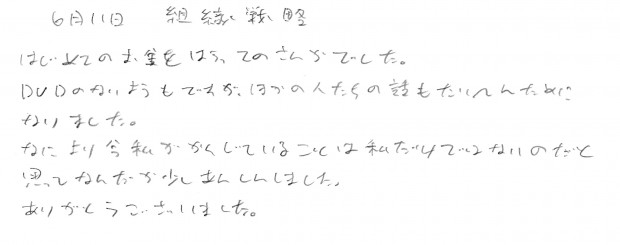 6月11日 組織戦略
はじめてのお金をはらってのさんかでした。
DVDのないようもですが、ほかの人たちの話もたいへんために
なりました。
なにより今私がかんじていることは私だけではないのだと
思ってなんだか少しあんしんしました。
ありがとうございました。